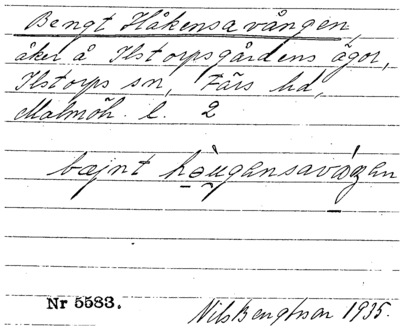 Bengt Håkensavången,
åker å Ilstorpsgårdens ägor,
Ilstorps sn, Färs hd,
Malmöh. l. 2
bæjnt
Nr 5583.
Nils Bengtsson 1935.